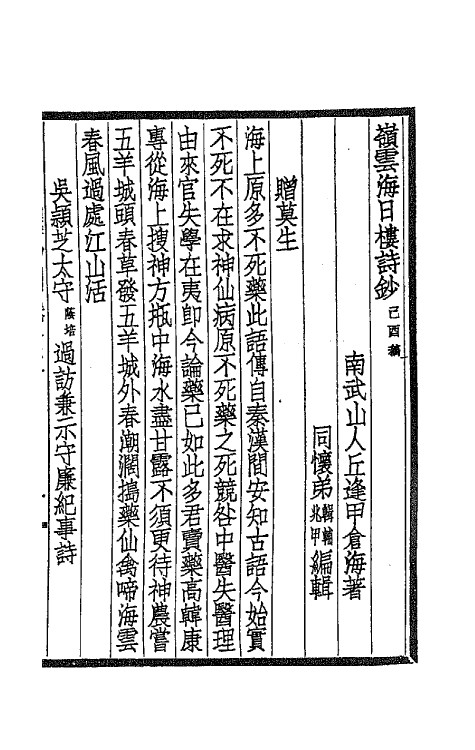 嶺雲海日樓詩鈔 己酉稿
南武山人丘逢甲倉海著
同懷弟 輯輔 兆甲 編輯
贈莫生
海上原多不死藥此語傳自秦漢間安知古語今始實
不死不在求神仙病原不死藥之死競咎中醫失醫理
由來官失學在夷即今論藥已如此多君賣藥高韓康
專從海上搜神方瓶中海水盡甘露不須更待神農嘗
五羊城頭春草發五羊城外春潮濶搗藥仙禽啼海雲
春風過處江山活
吳頴芝太守 蔭培 過訪兼示守廉紀事詩